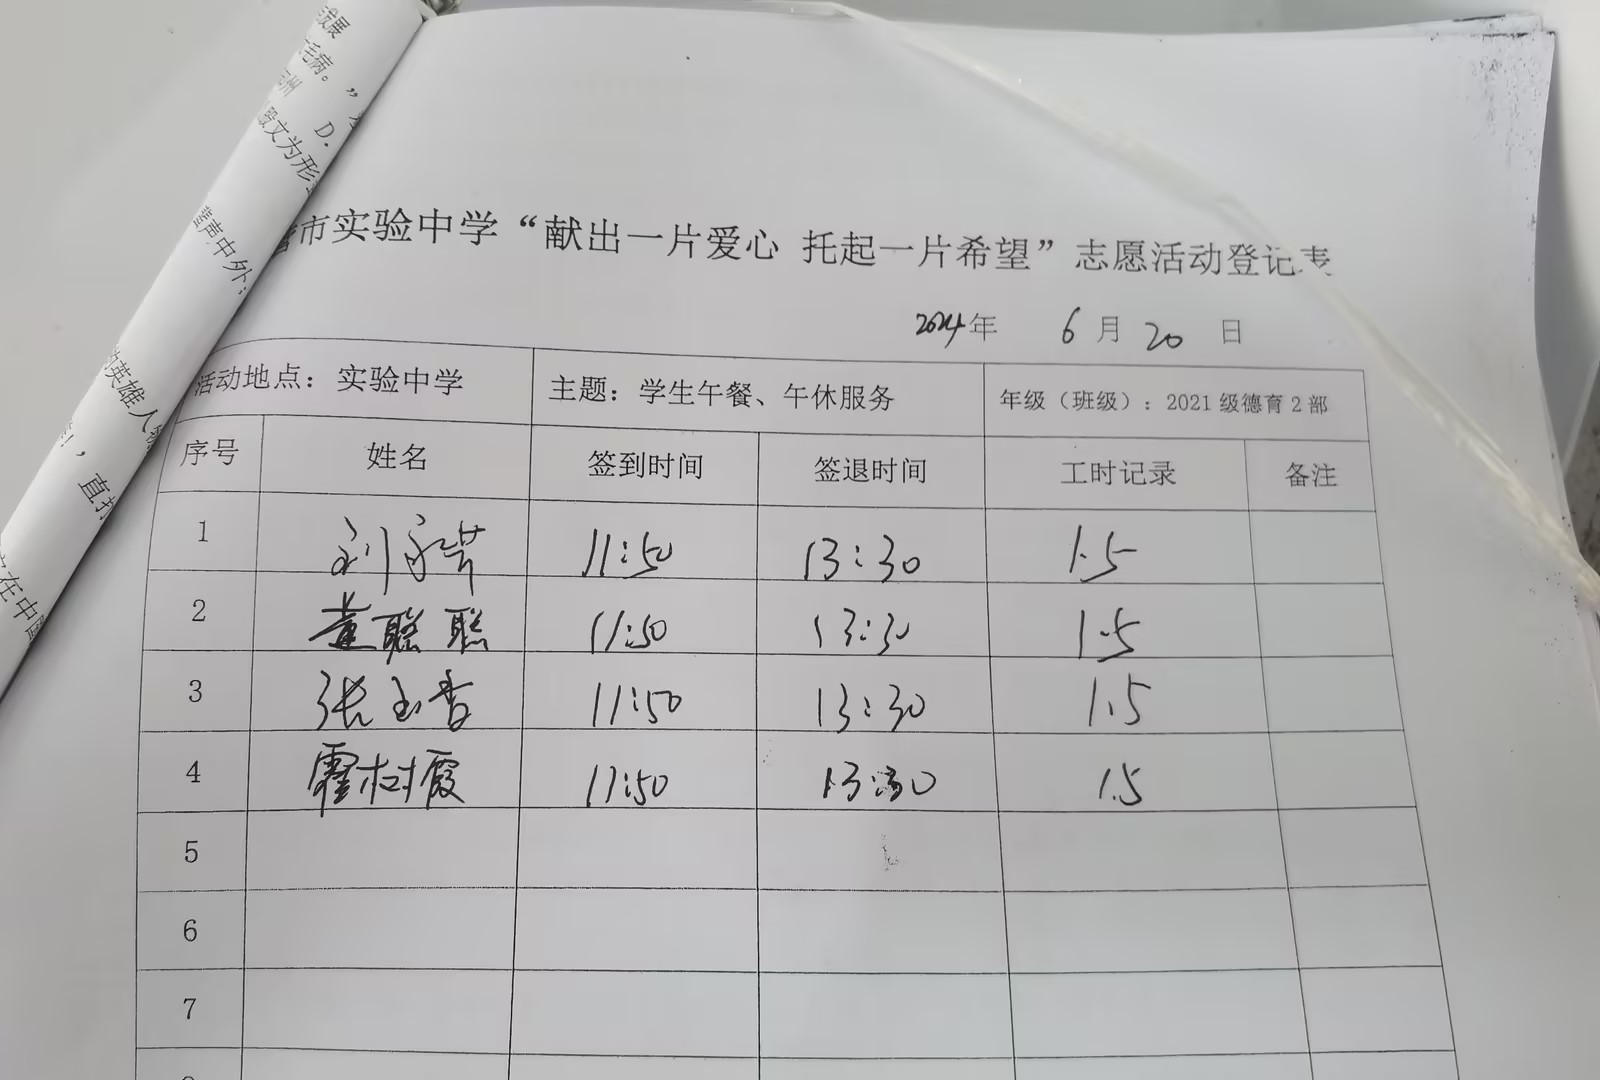 成展
毛病。”
州
D.
段文为形
声中外
的英雄人
！，直
在中
市实验中学“献出一片爱心 托起一片希望”志愿活动登记表
2024年 6月20日
活动地点：实验中学 主题：学生午餐、午休服务 年级（班级）：2021级德育2部
序号 姓名 签到时间 签退时间 工时记录 备注
1 刘 11:50 13:30 1.5
2 黄聪聪 11:50 13:30 1.5
3 张玉香 11:50 13:30 1.5
4 霍树霞 11:50 13:30 1.5
5
6
7